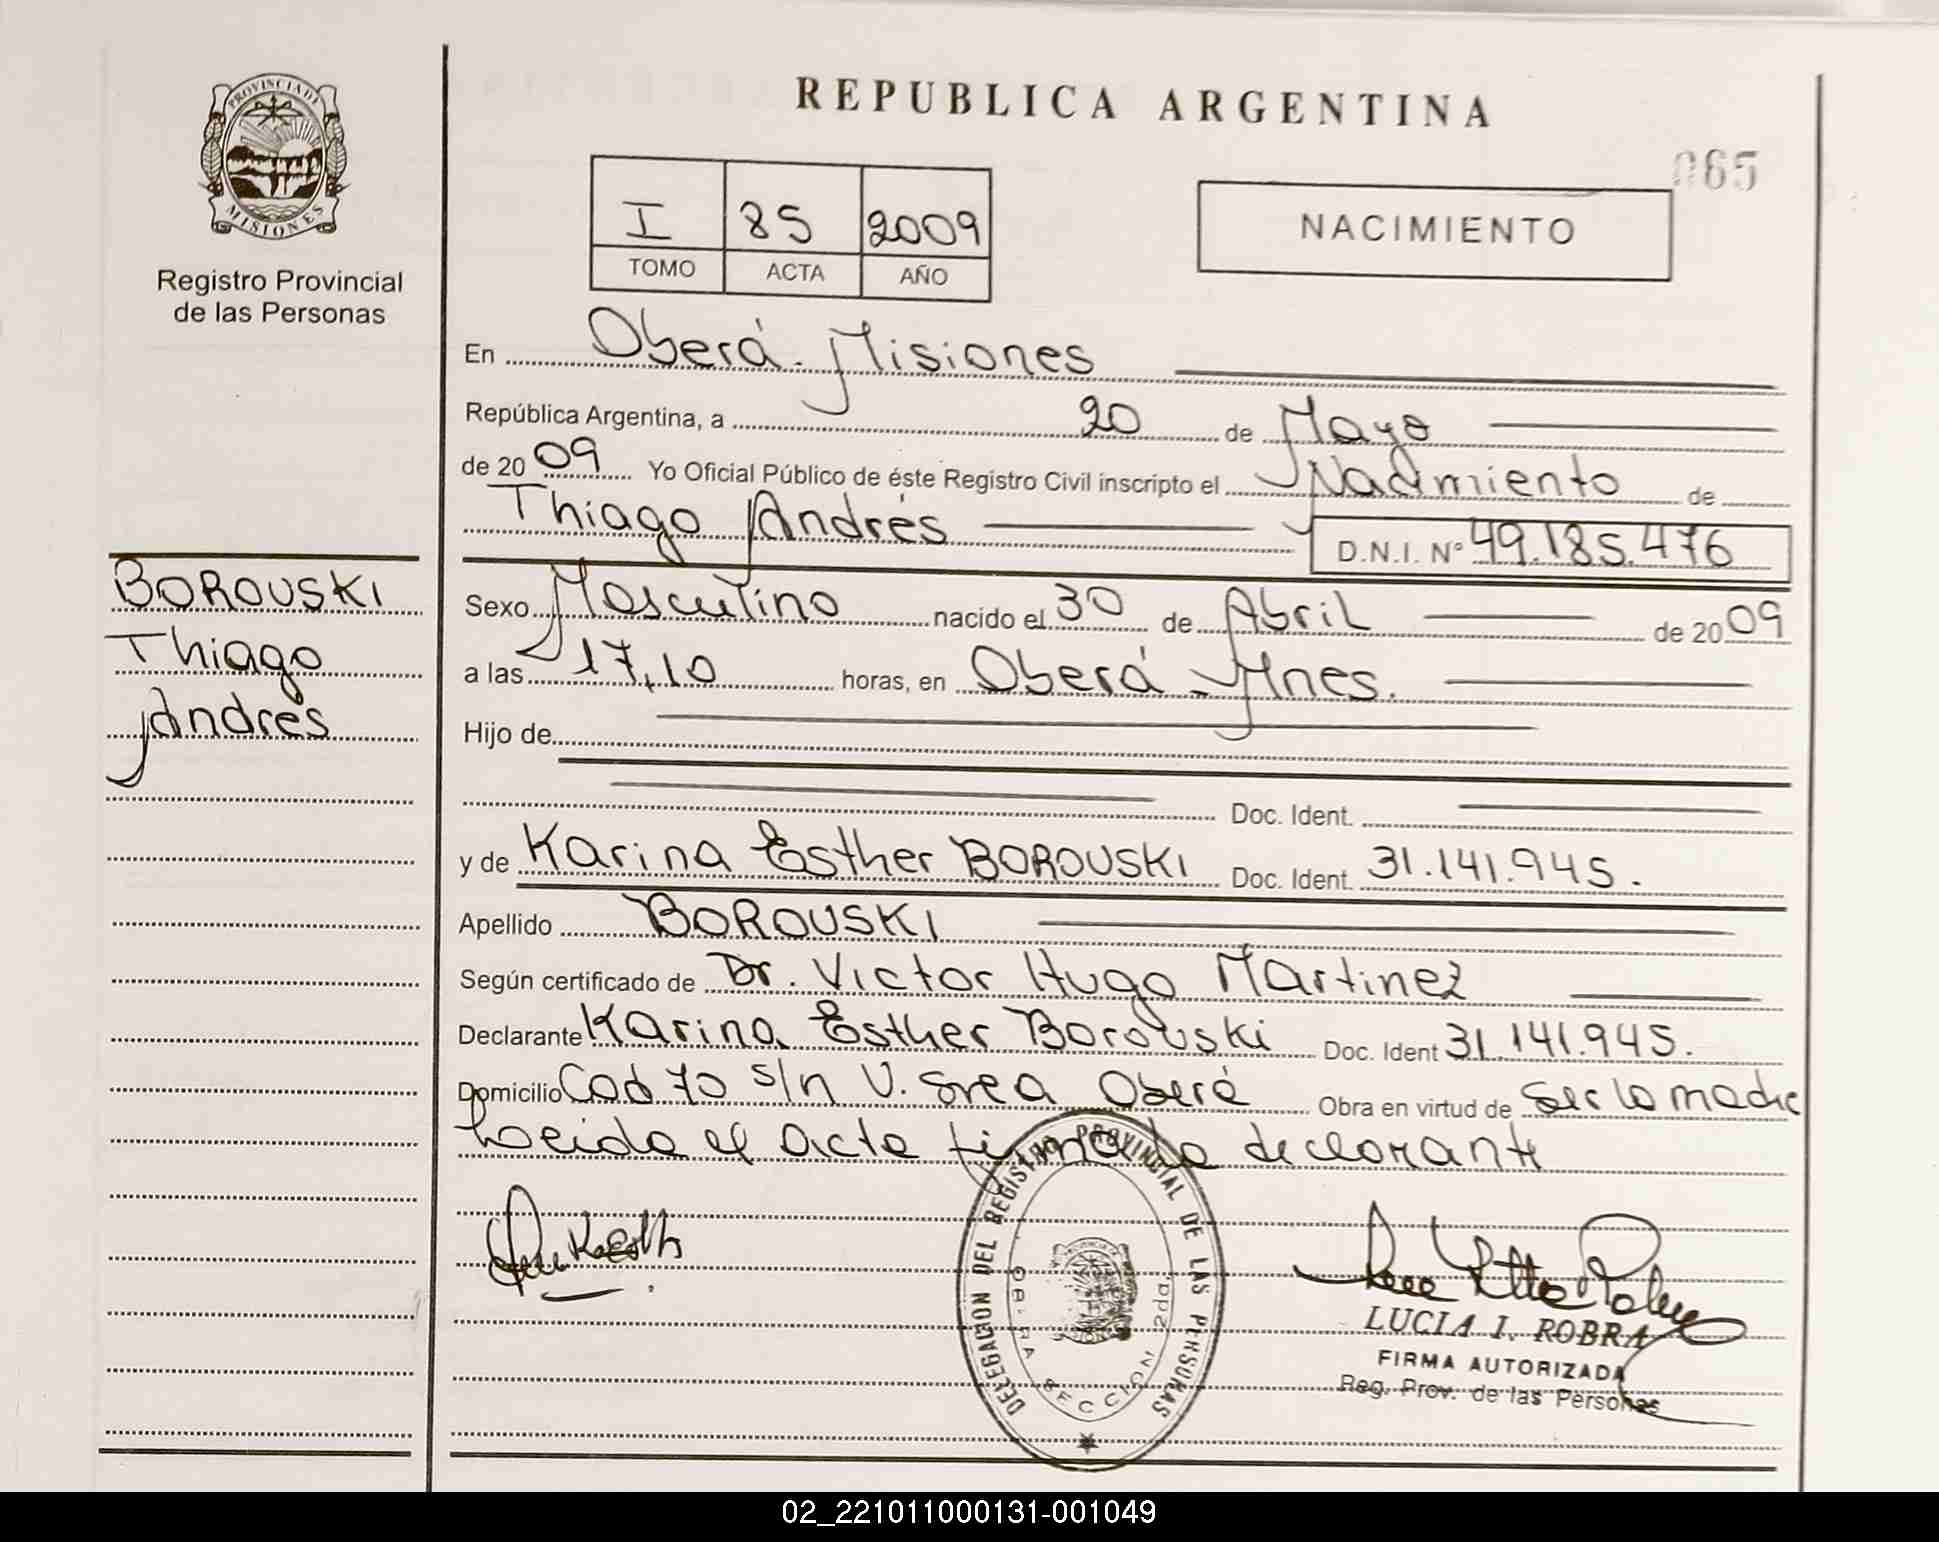 REPUBLICA ARGENTINA
065
PROVINCIA DE
MISIONES
Registro Provincial
de las Personas
I 85 2009
TOMO ACTA AÑO
NACIMIENTO
En Oberá - Misiones
República Argentina, a 20 de Mayo
de 20 09 Yo Oficial Público de éste Registro Civil inscripto el Nacimiento de
Thiago Andrés
D.N.I. Nº 49.185.476
BOROUSKI
Thiago
Andrés
Sexo Masculino nacido el 30 de Abril de 20 09
a las 17,10 horas, en Oberá - Mnes.
Hijo de
Doc. Ident.
y de Karina Esther BOROUSKI Doc. Ident. 31.141.945.
Apellido BOROUSKI
Según certificado de Dr. Victor Hugo Martinez
Declarante Karina Esther Borouski Doc. Ident 31.141.945.
Domicilio s/n V. Svea Oberá Obra en virtud de ser la madre
Leida el acta firma la declarante
DELEGACION DEL REGISTRO PROVINCIAL DE LAS PERSONAS
SECCION 2da.
LUCIA I. ROBRA
FIRMA AUTORIZADA
Reg. Prov. de las Personas
02_221011000131-001049